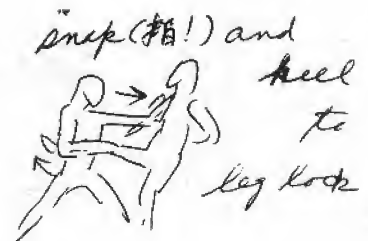 "snap(指!) and
heel
to
leg lock